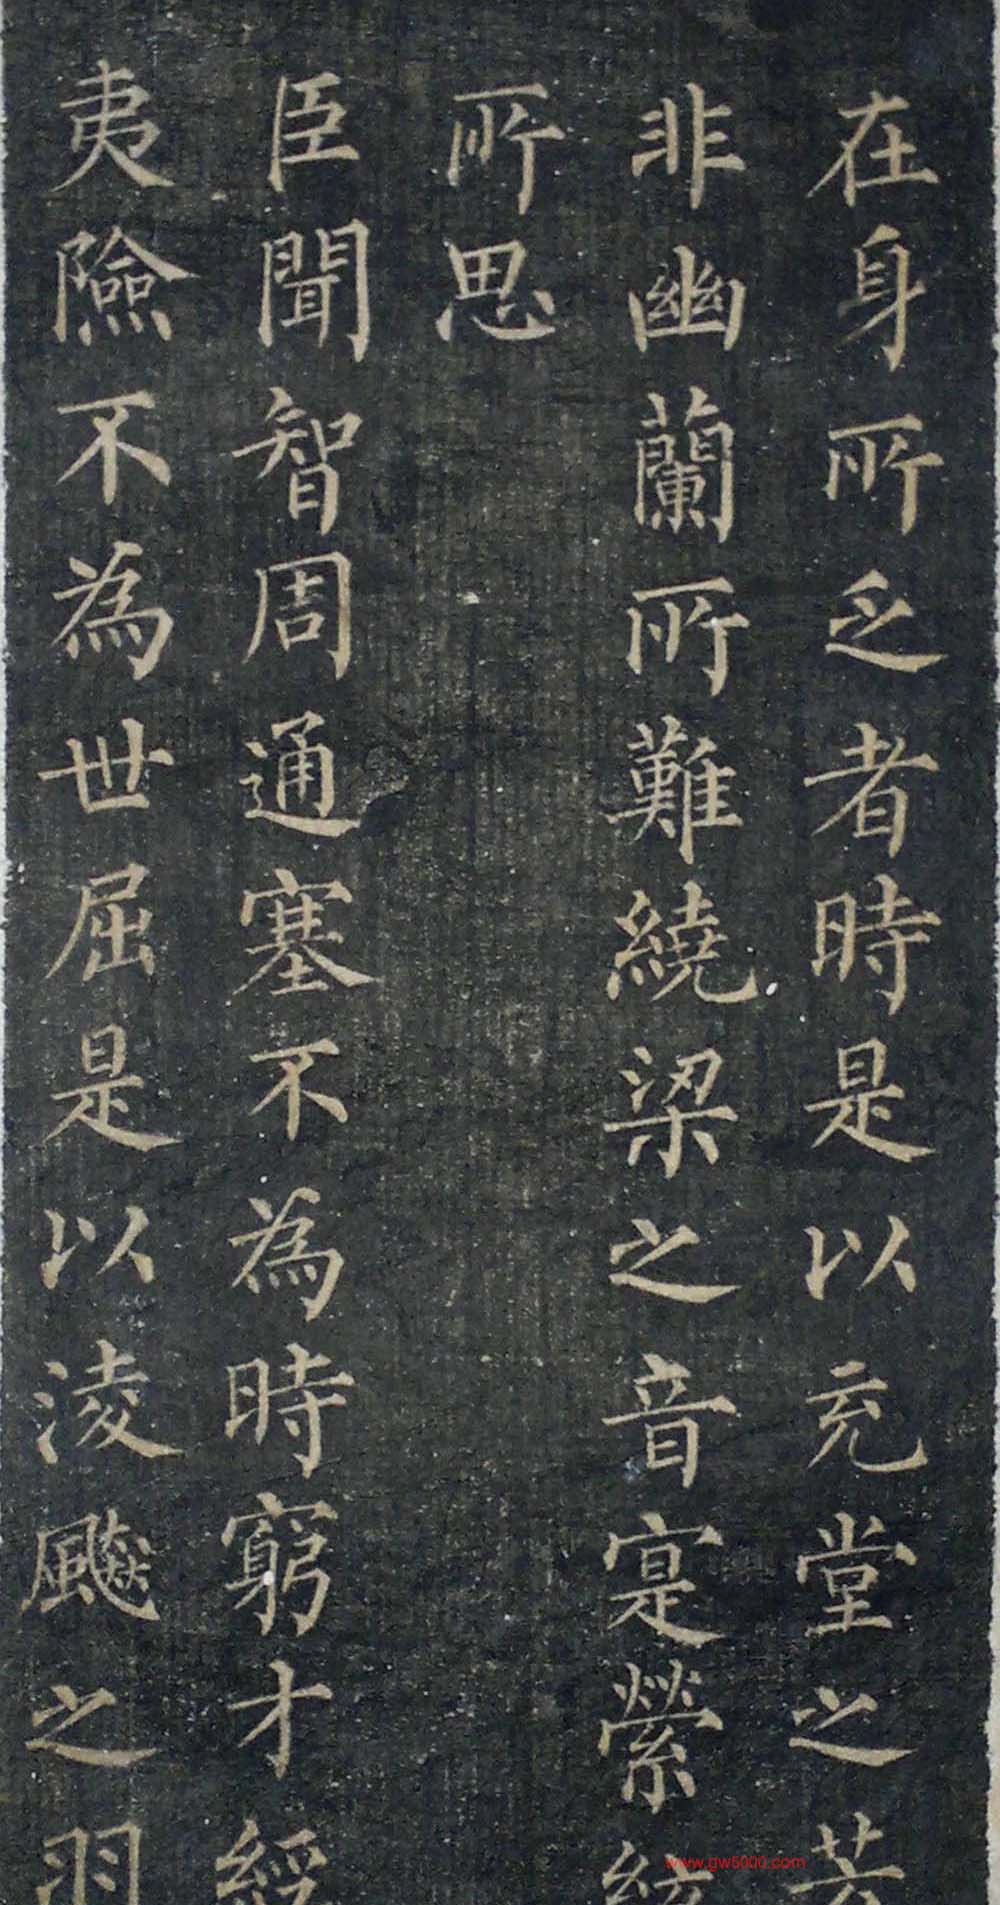 在身所乏者時是以充堂之芳
非幽蘭所難繞梁之音寔縈
所思
臣聞智周通塞不為時窮才經
夷險不為世屈是以淩飈之羽
www.gw5000.com